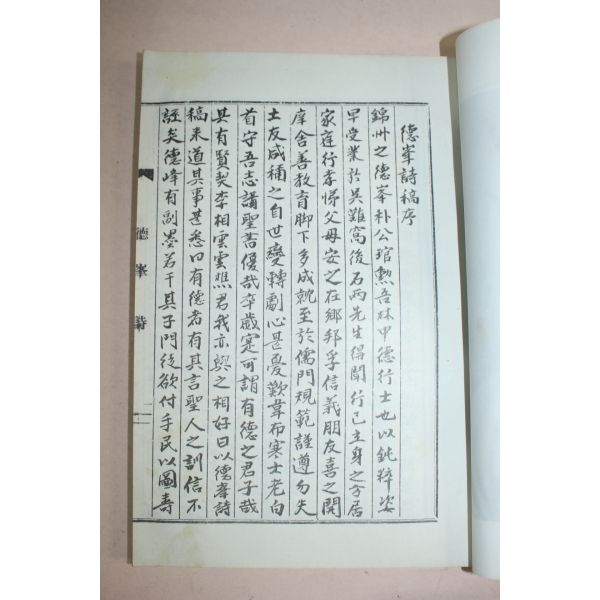 德峯詩稿序
錦州之德峯朴公琯勲吾林中德行士也以鈍粹姿
早受業於吳難窩後石兩先生得聞行己立身之方居
家庭行孝悌父母安之在鄉邦孚信義朋友喜之開
庠舍善教育脚下多成就至於儒門規範謹遵勿失
士友咸稱之自世變轉劇心甚憂歎韋布寒士老白
首守吾志誦聖書優哉卒歲寔可謂有德之君子哉
其有賢契李相雲雲樵君我亦與之相好曰以德峯詩
稿来道其事甚悉曰有德者有其言聖人之訓信不
誣矣德峰有副墨若干其子門徒欲付手民以圖壽
德峯詩
一